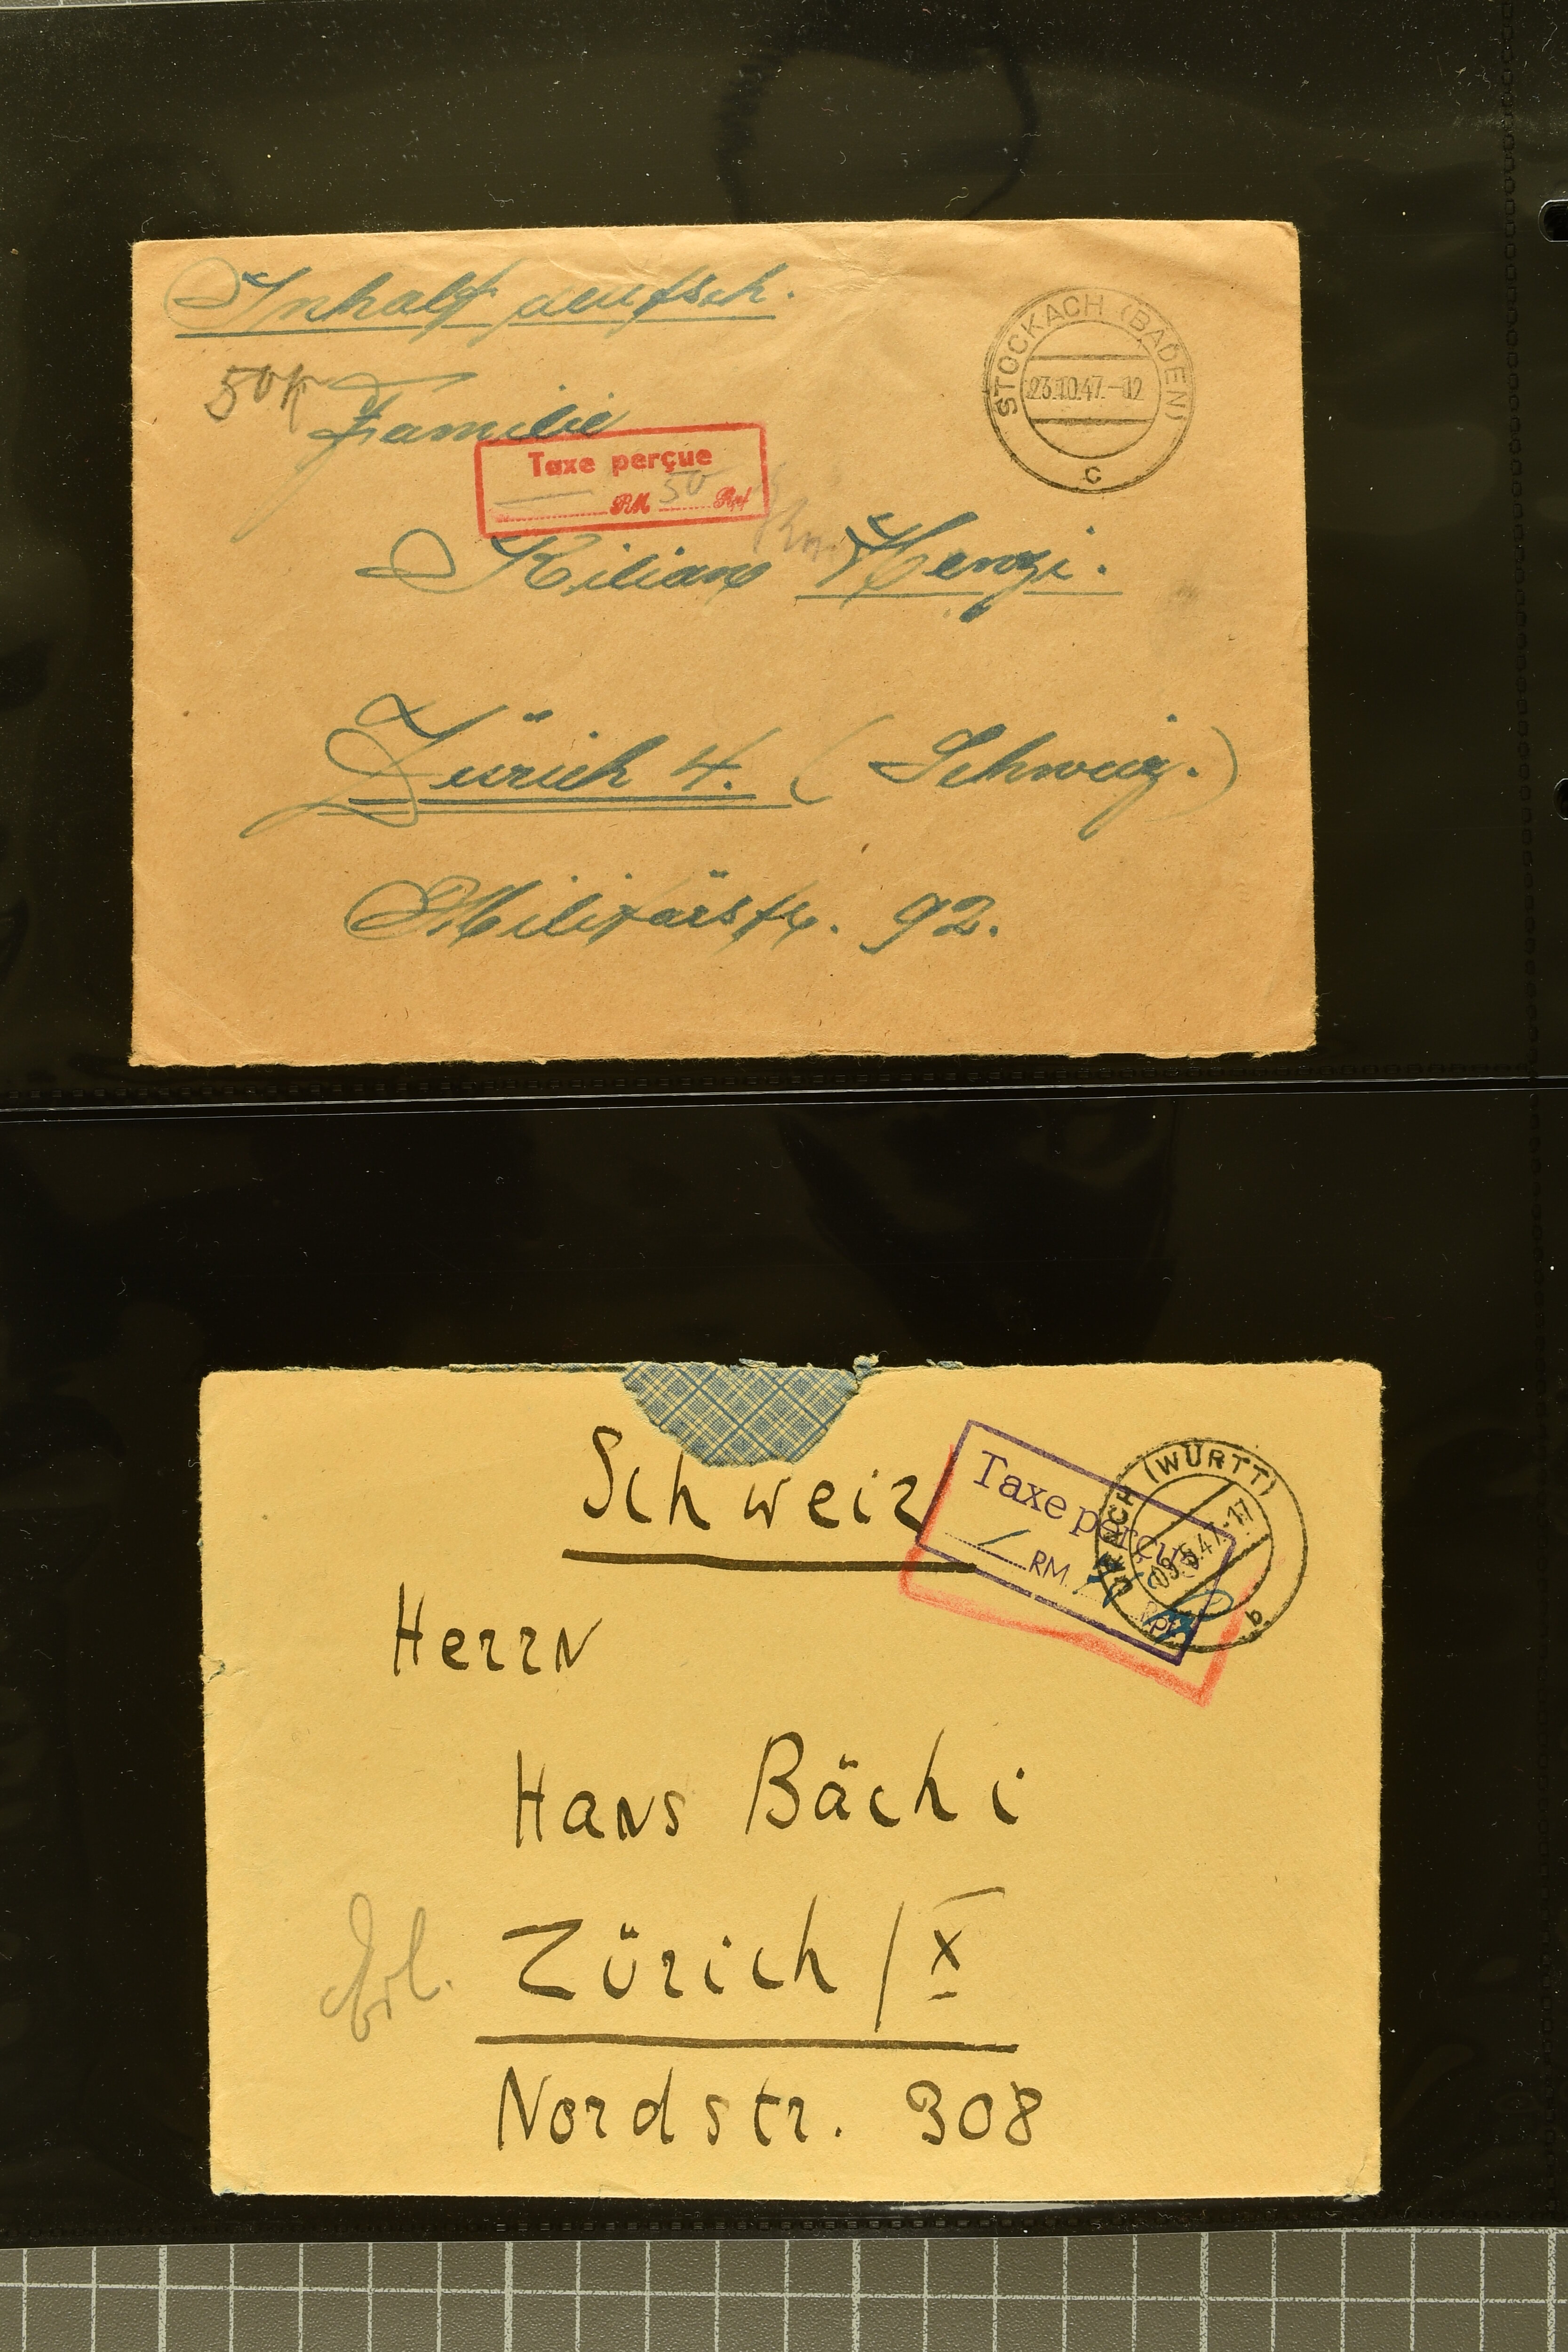 Inhalt deutsch.
50 R
Familie
Taxe perçue
RM 50 Rpf
Kilian Menzi.
Zürich 4. (Schweiz.)
Militärstr. 92.
STOCKACH (BADEN)
23.10.47.-12
c
Schweiz
Taxe perçue
RM. Rpf
(WÜRTT)
09.5.47.-17
b
Herrn
Hans Bächi
Zürich / X
Nordstr. 308